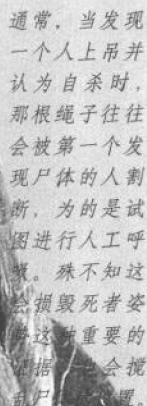 通常，当发现
一个人上吊并
认为自杀时，
那根绳子往往
会被第一个发
现尸体的人割
断，为的是试
图进行人工呼
。殊不知这
会损毁死者姿
这种重要的
据，也会搅
乱尸 置。